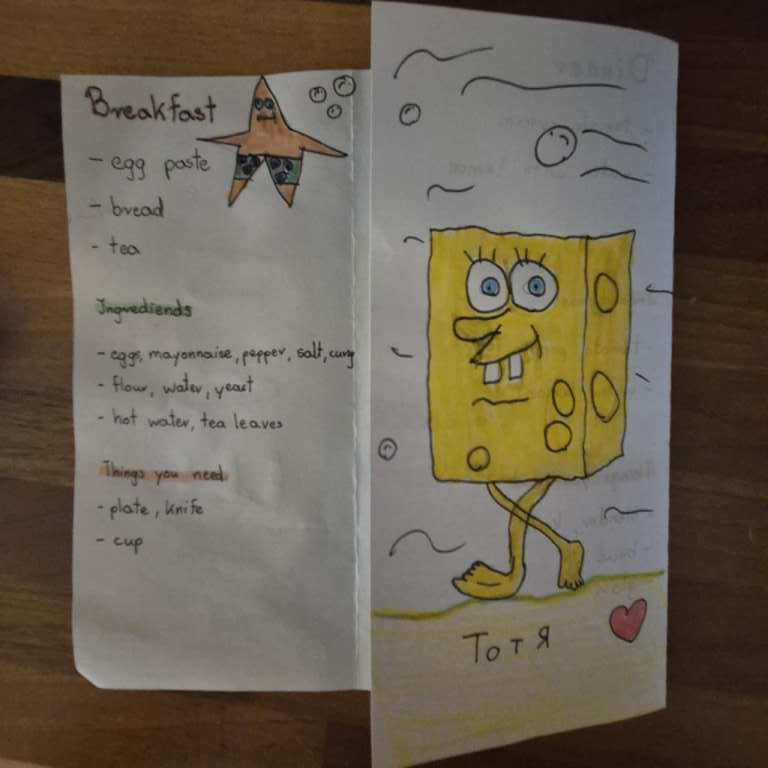 Breakfast
- egg paste
- bread
- tea
Ingrediends
- eggs, mayonnaise, pepper, salt, curry
- flour, water, yeast
- hot water, tea leaves
Things you need
- plate, knife
- cup
Тотя